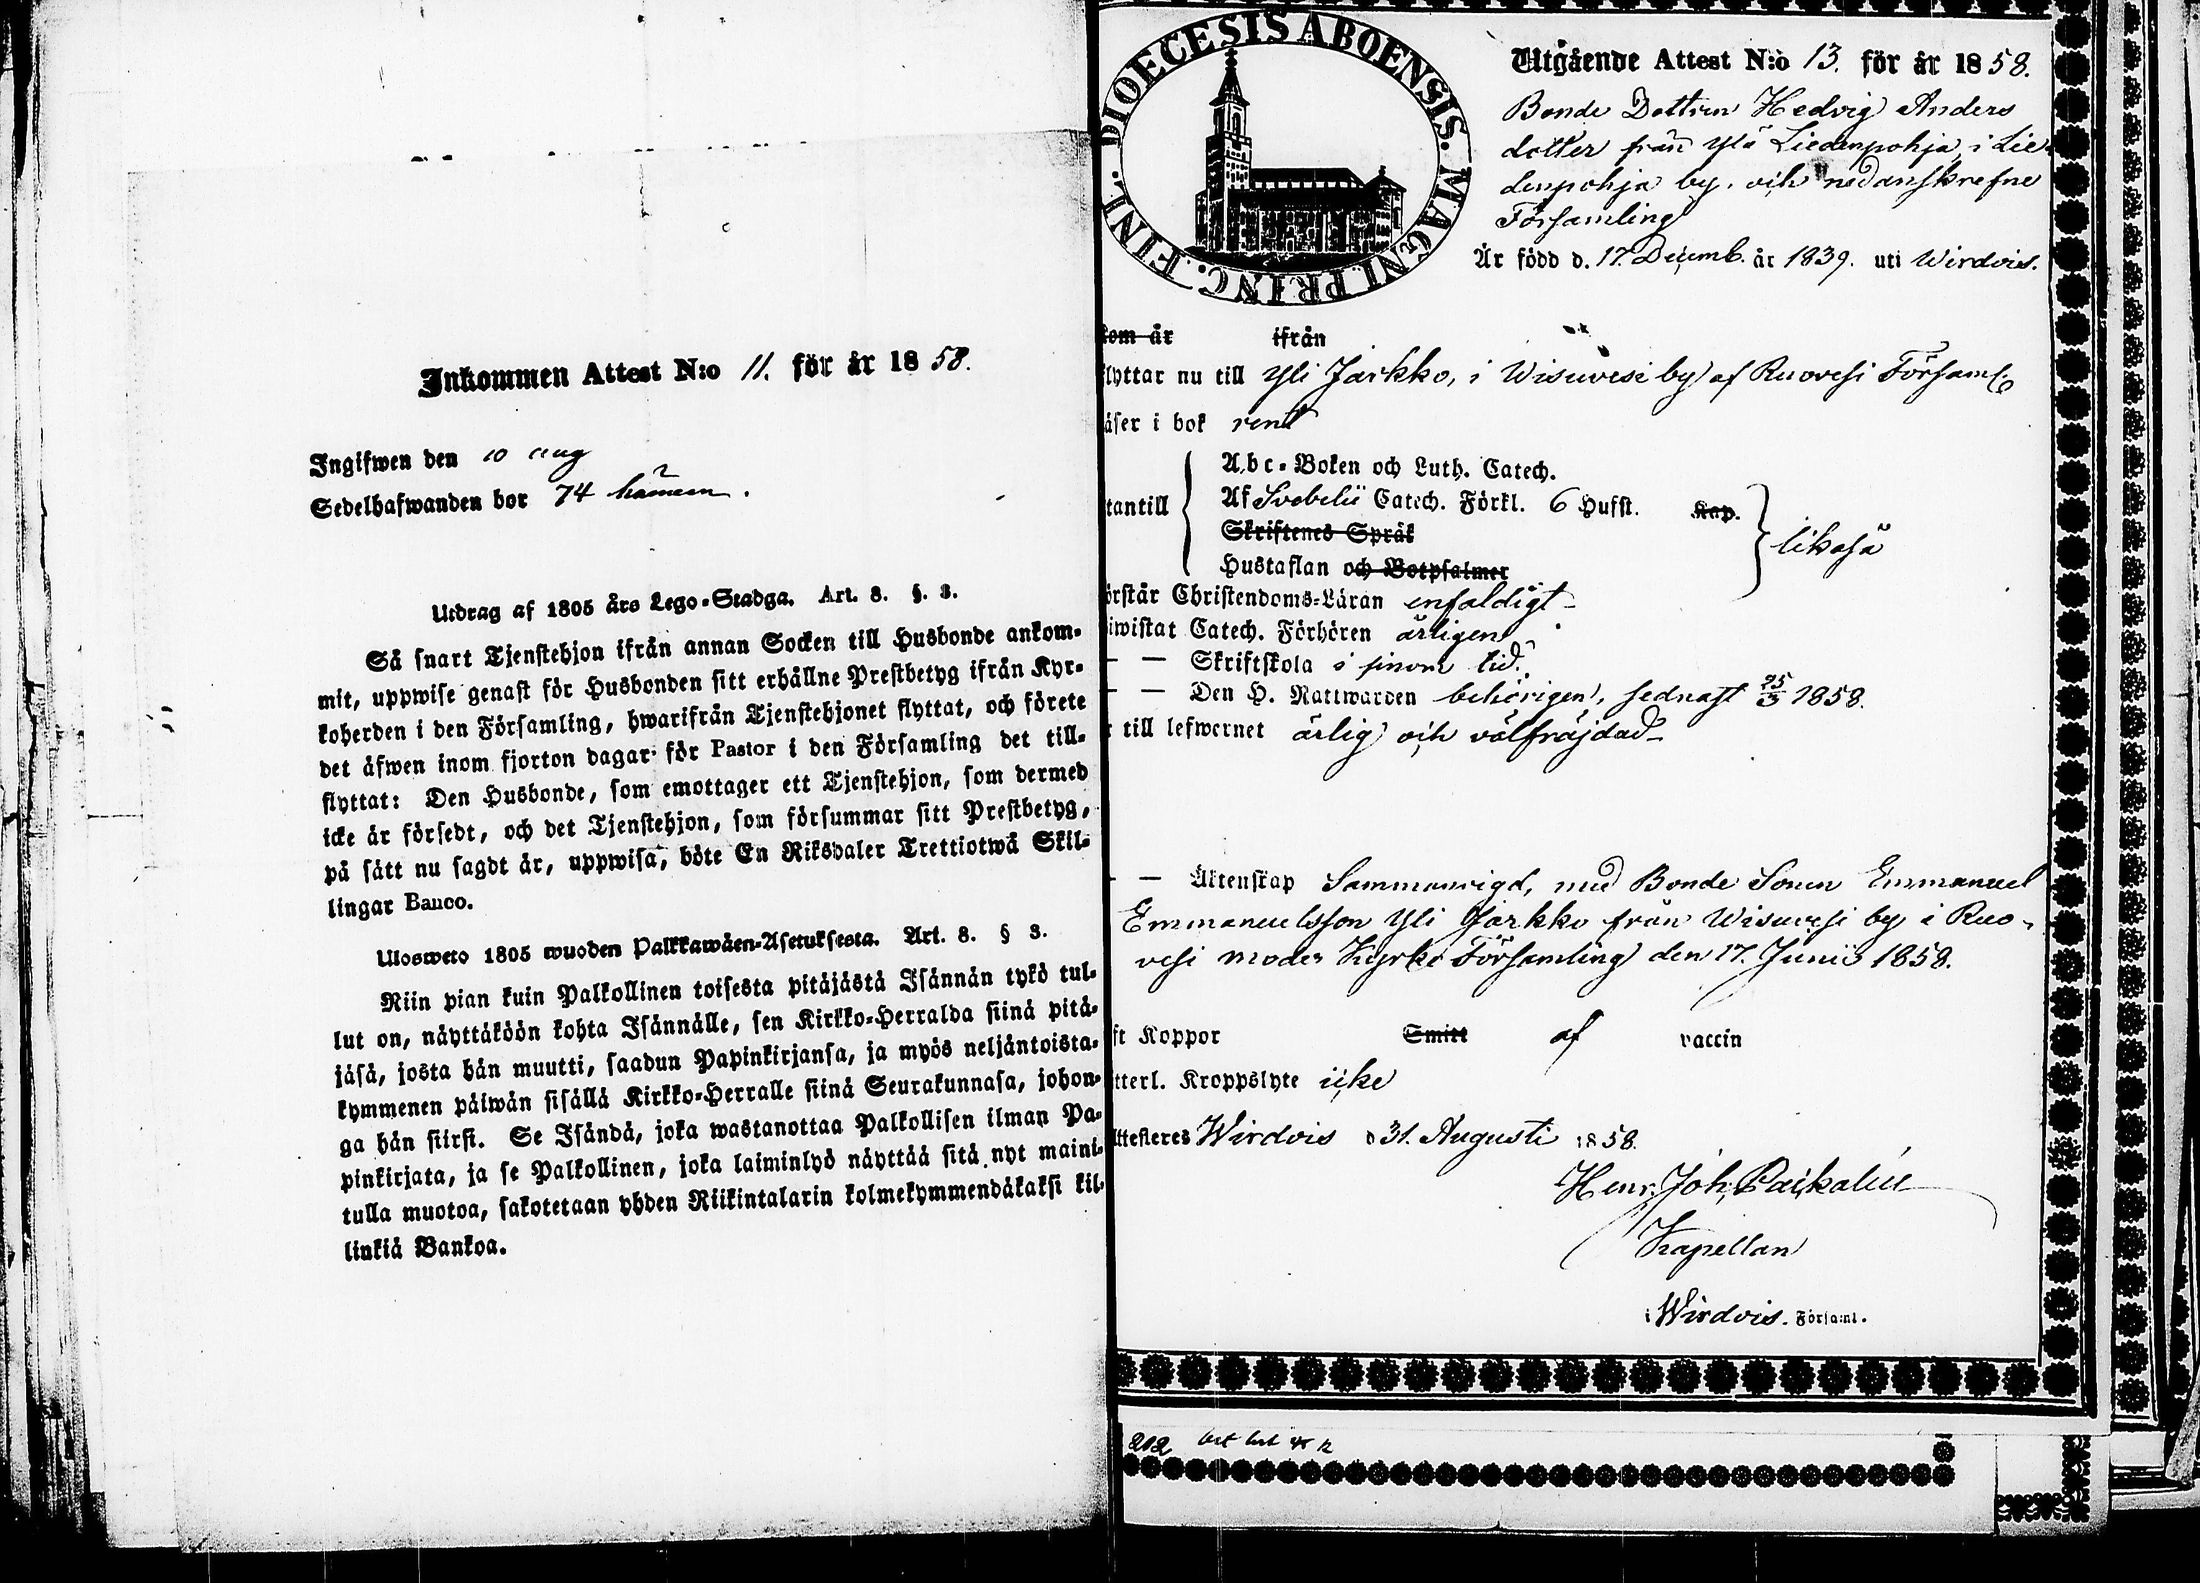 Inkommen Attest N:o 11. för år 1858.
Ingifwen den 10 aug
Sedelhafwanden bor 74
Utdrag af 1805 års Lego-Stadga. Art. 8. §. 3.
Så snart Tjenstehjon ifrån annan Socken till Husbonde ankom-
mit, uppwise genast för Husbonden sitt erhållne Prestbetyg ifrån Kyr-
koherden i den Församling, hwarifrån Tjenstehjonet flyttat, och förete
det äfwen inom fjorton dagar för Pastor i den Församling det till-
flyttat: Den Husbonde, som emottager ett Tjenstehjon, som dermed
icke är försedt, och det Tjenstehjon, som försummar sitt Prestbetyg,
på sätt nu sagdt är, uppwisa, böte En Riksdaler Trettiotwå Skil-
lingar Banco.
Ulosweto 1805 wuoden Palkkawäen-Asetuksesta. Art. 8. § 3.
Niin pian kuin Palkollinen toisesta pitäjästä Isännän tykö tul-
lut on, näyttäköön kohta Isännälle, sen Kirkko-Herralda siinä pitä-
jäsä, josta hän muutti, saadun Papinkirjansa, ja myös neljäntoista-
kymmenen päiwän sisällä Kirkko-Herralle siinä Seurakunnasa, johon-
ga hän siirsi. Se Isändä, joka wastanottaa Palkollisen ilman Pa-
pinkirjata, ja se Palkollinen, joka laiminlyö näyttää sitä nyt maini-
tulla muotoa, sakotetaan yhden Riikintalarin kolmekymmendäkaksi kil-
linkiä Bankoa.
DIOECESIS ABOENSIS. MAGNI PRINC. FINL.
Utgående Attest N:o 13. för år 1858.
Bonde Dottren Hedvig Anders
dotter från Ylä Liedenpohja i Lie-
denpohja by, och nedanskrefne
Församling
Är född d. 17. Decemb. år 1839. uti Wirdois.
kom år ifrån
flyttar nu till Yli Jarkko, i Wisuvesi by af Ruovesi Församl.
läser i bok rent
utantill
Abc-Boken och Luth. Catech.
Af Svebelii Catech. Förkl. 6 Hufst. Kap.
Skriftenes Språk
Hustaflan och Botpsalmer
likaså
örstår Christendoms-Läran enfaldigt
iwistat Catech. Förhören årligen
— — Skriftskola i sinom tid.
— — Den H. Nattwarden behörigen, sednast 25/3 1858.
r till lefwernet ärlig och välfräjdad
— — Äktenskap Sammanvigd, med Bonde Sonen Emmanuel
Emmanuelsson Yli Jarkko från Wisuvesi by i Ruo-
vesi moder Kyrko Församling den 17. Junii 1858.
ft Koppor Smitt af vaccin
tterl. Kroppslyte icke
Attesteres Wirdois d 31. Augusti 1858.
Henr. Joh. Paskalin
Kapellan
i Wirdois. Församl.
212